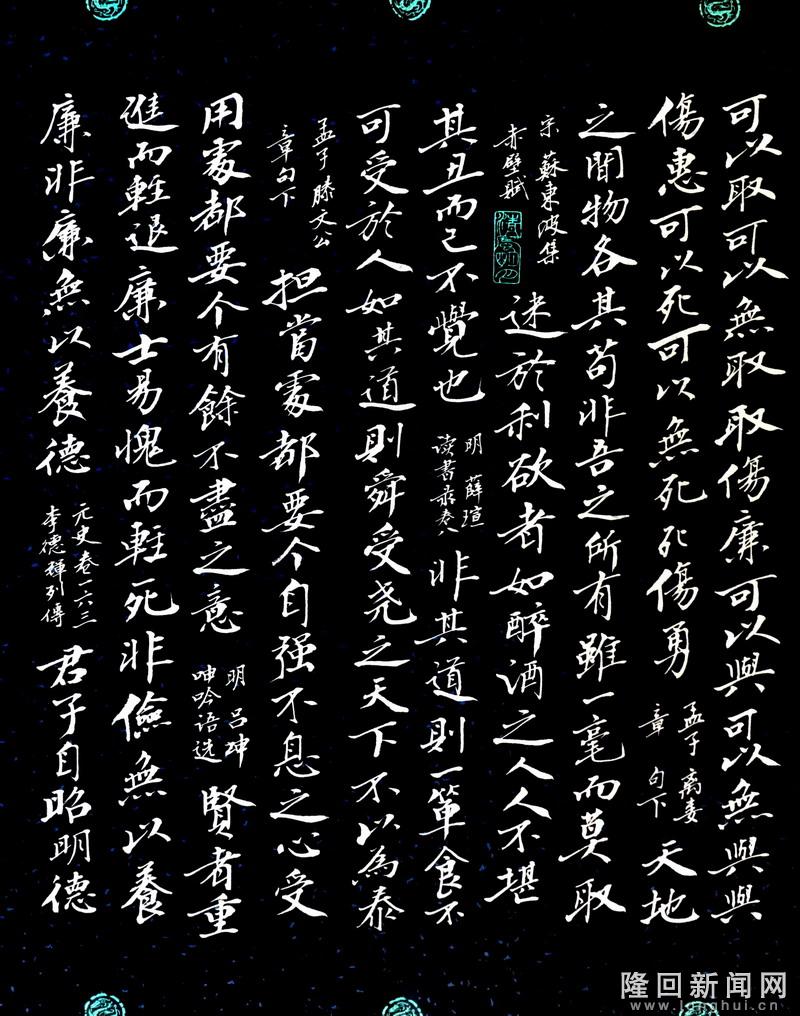 可以取可以無取取傷廉可以與可以無與與
傷惠可以死可以無死死傷勇 孟子 离娄章 句下 天地
之間物各其苟非吾之所有雖一毫而莫取
宋 蘇東坡集赤壁賦 迷於利欲者如醉酒之人人不堪
其丑而己不覺也 明 薛瑄读書录卷八 非其道則一簞食不
可受於人如其道則舜受尧之天下不以為泰
孟子 滕文公章句下 担當處都要个自强不息之心受
用處都要个有餘不盡之意 明 呂坤呻吟语选 賢者重
進而輕退廉士易愧而輕死非儉無以養
廉非廉無以養德 元史卷一六三李德輝列傳 君子自昭明德
隆回新闻网
www.longhui.cn